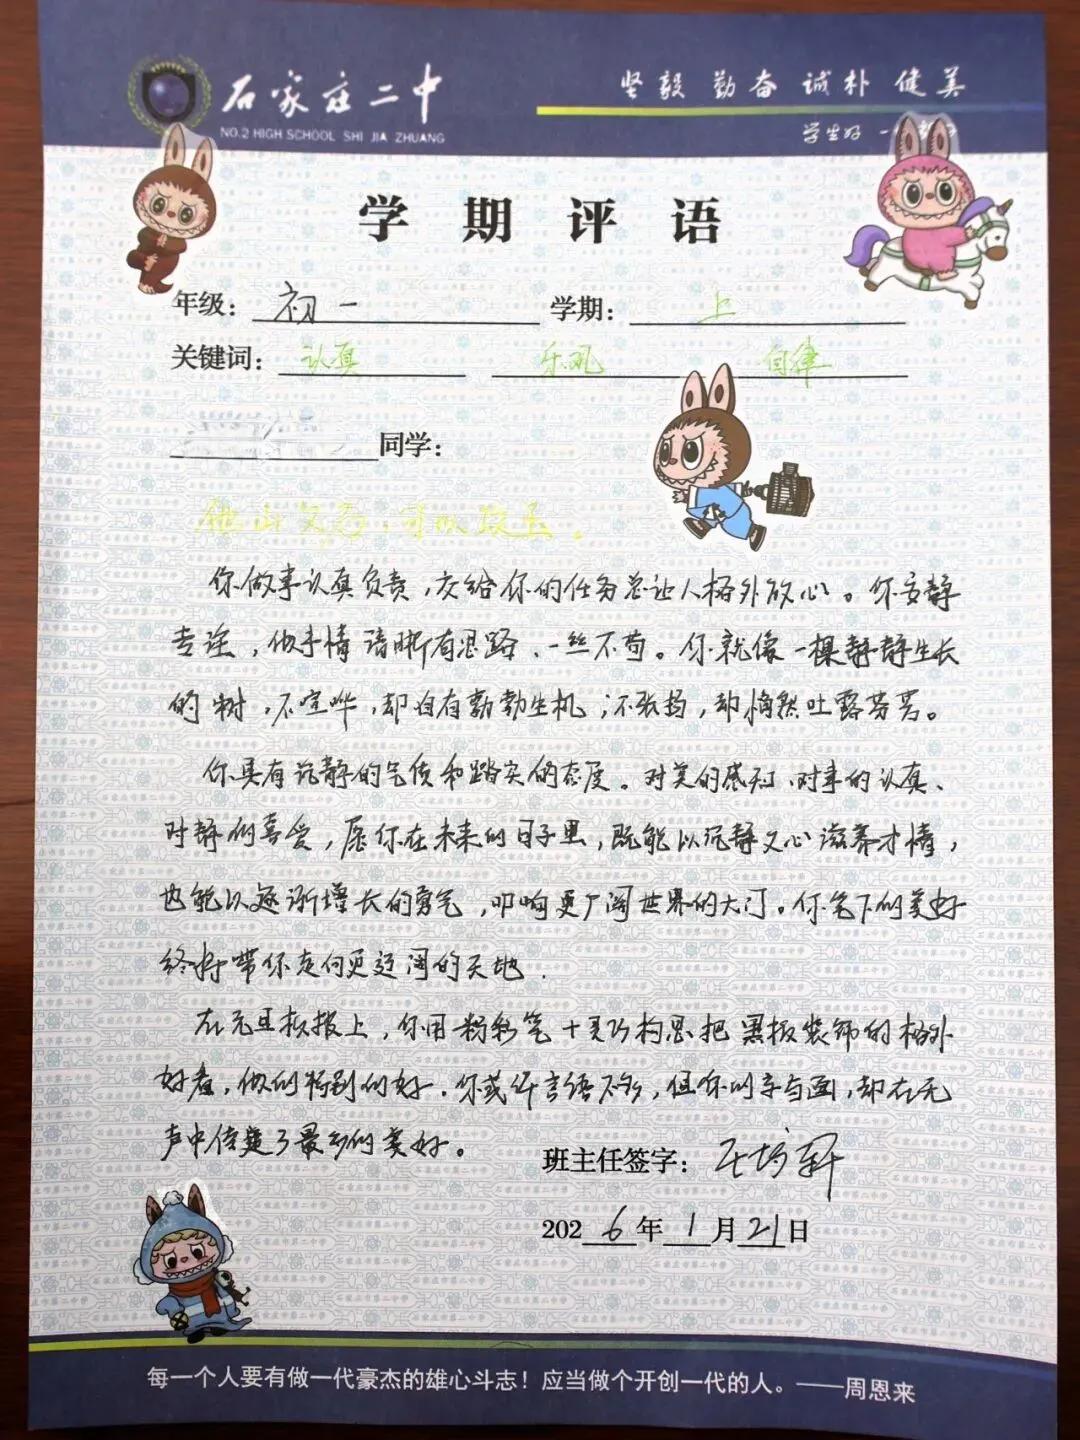 石家庄二中
NO.2 HIGH SCHOOL SHI JIA ZHUANG
坚毅 勤奋 诚朴 健美
学生好 一
学期评语
年级：初一 学期：上
关键词：认真 乐观 自律
同学：
他山之石，可以攻玉。
你做事认真负责，交给你的任务总让人格外放心。你安静
专注，做事情清晰有思路、一丝不苟。你就像一棵静静生长
的树，不喧哗，却自有勃勃生机；不张扬，却悄然吐露芬芳。
你具有沉静的气质和踏实的态度。对美的感知、对事的认真、
对静的喜爱，愿你在未来的日子里，既能以沉静之心滋养才情，
也能以逐渐增长的勇气，叩响更广阔世界的大门。你笔下的美好
终将带你走向更辽阔的天地.
在元旦板报上，你用粉彩笔十灵巧构思把黑板装饰的格外
好看，做的特别的好.你或许言语不多，但你的字与画，却在无
声中传递了最多的美好。
班主任签字：
2026年1月21日
每一个人要有做一代豪杰的雄心斗志！应当做个开创一代的人。——周恩来